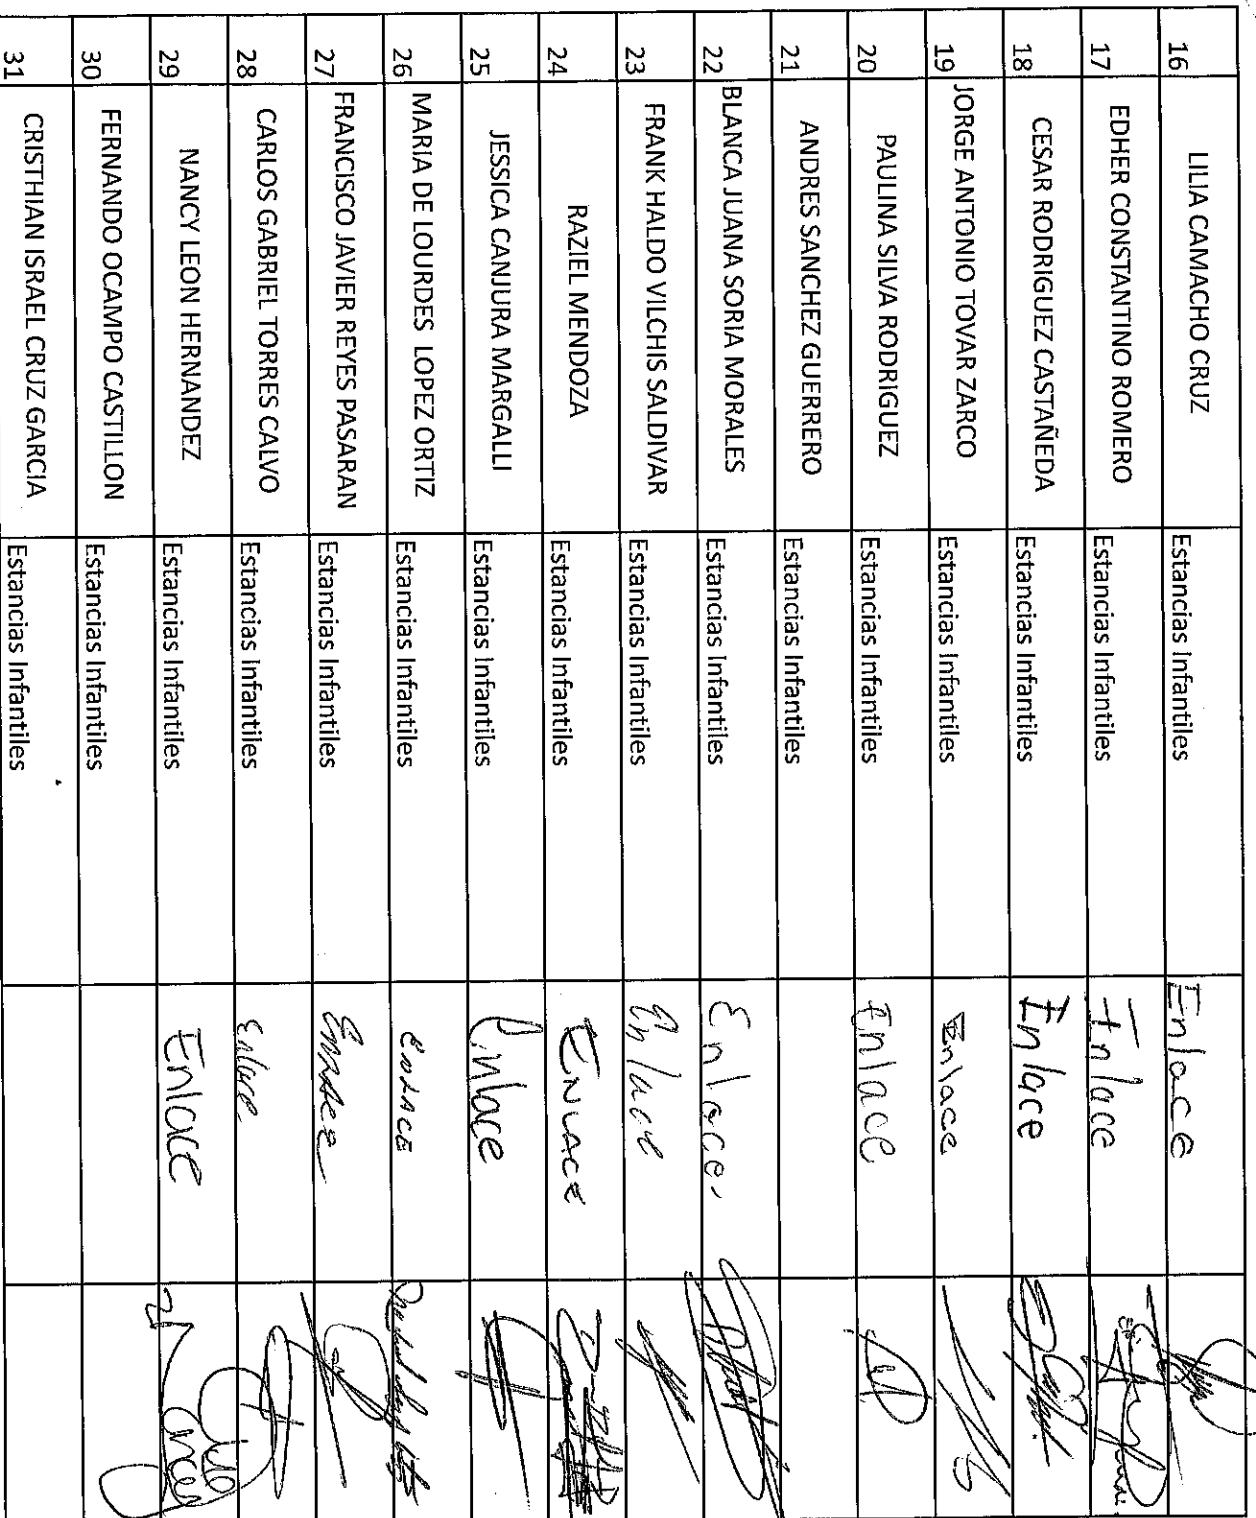 16 LILIA CAMACHO CRUZ Estancias Infantiles Enlace
17 EDHER CONSTANTINO ROMERO Estancias Infantiles Enlace
18 CESAR RODRIGUEZ CASTAÑEDA Estancias Infantiles Enlace
19 JORGE ANTONIO TOVAR ZARCO Estancias Infantiles Enlace
20 PAULINA SILVA RODRIGUEZ Estancias Infantiles Enlace
21 ANDRES SANCHEZ GUERRERO Estancias Infantiles
22 BLANCA JUANA SORIA MORALES Estancias Infantiles Enlace
23 FRANK HALDO VILCHIS SALDIVAR Estancias Infantiles Enlace
24 RAZIEL MENDOZA Estancias Infantiles ENLACE
25 JESSICA CANJURA MARGALLI Estancias Infantiles Enlace
26 MARIA DE LOURDES LOPEZ ORTIZ Estancias Infantiles ENLACE
27 FRANCISCO JAVIER REYES PASARAN Estancias Infantiles Enlace
28 CARLOS GABRIEL TORRES CALVO Estancias Infantiles Enlace
29 NANCY LEON HERNANDEZ Estancias Infantiles Enlace
30 FERNANDO OCAMPO CASTILLON Estancias Infantiles
31 CRISTHIAN ISRAEL CRUZ GARCIA Estancias Infantiles